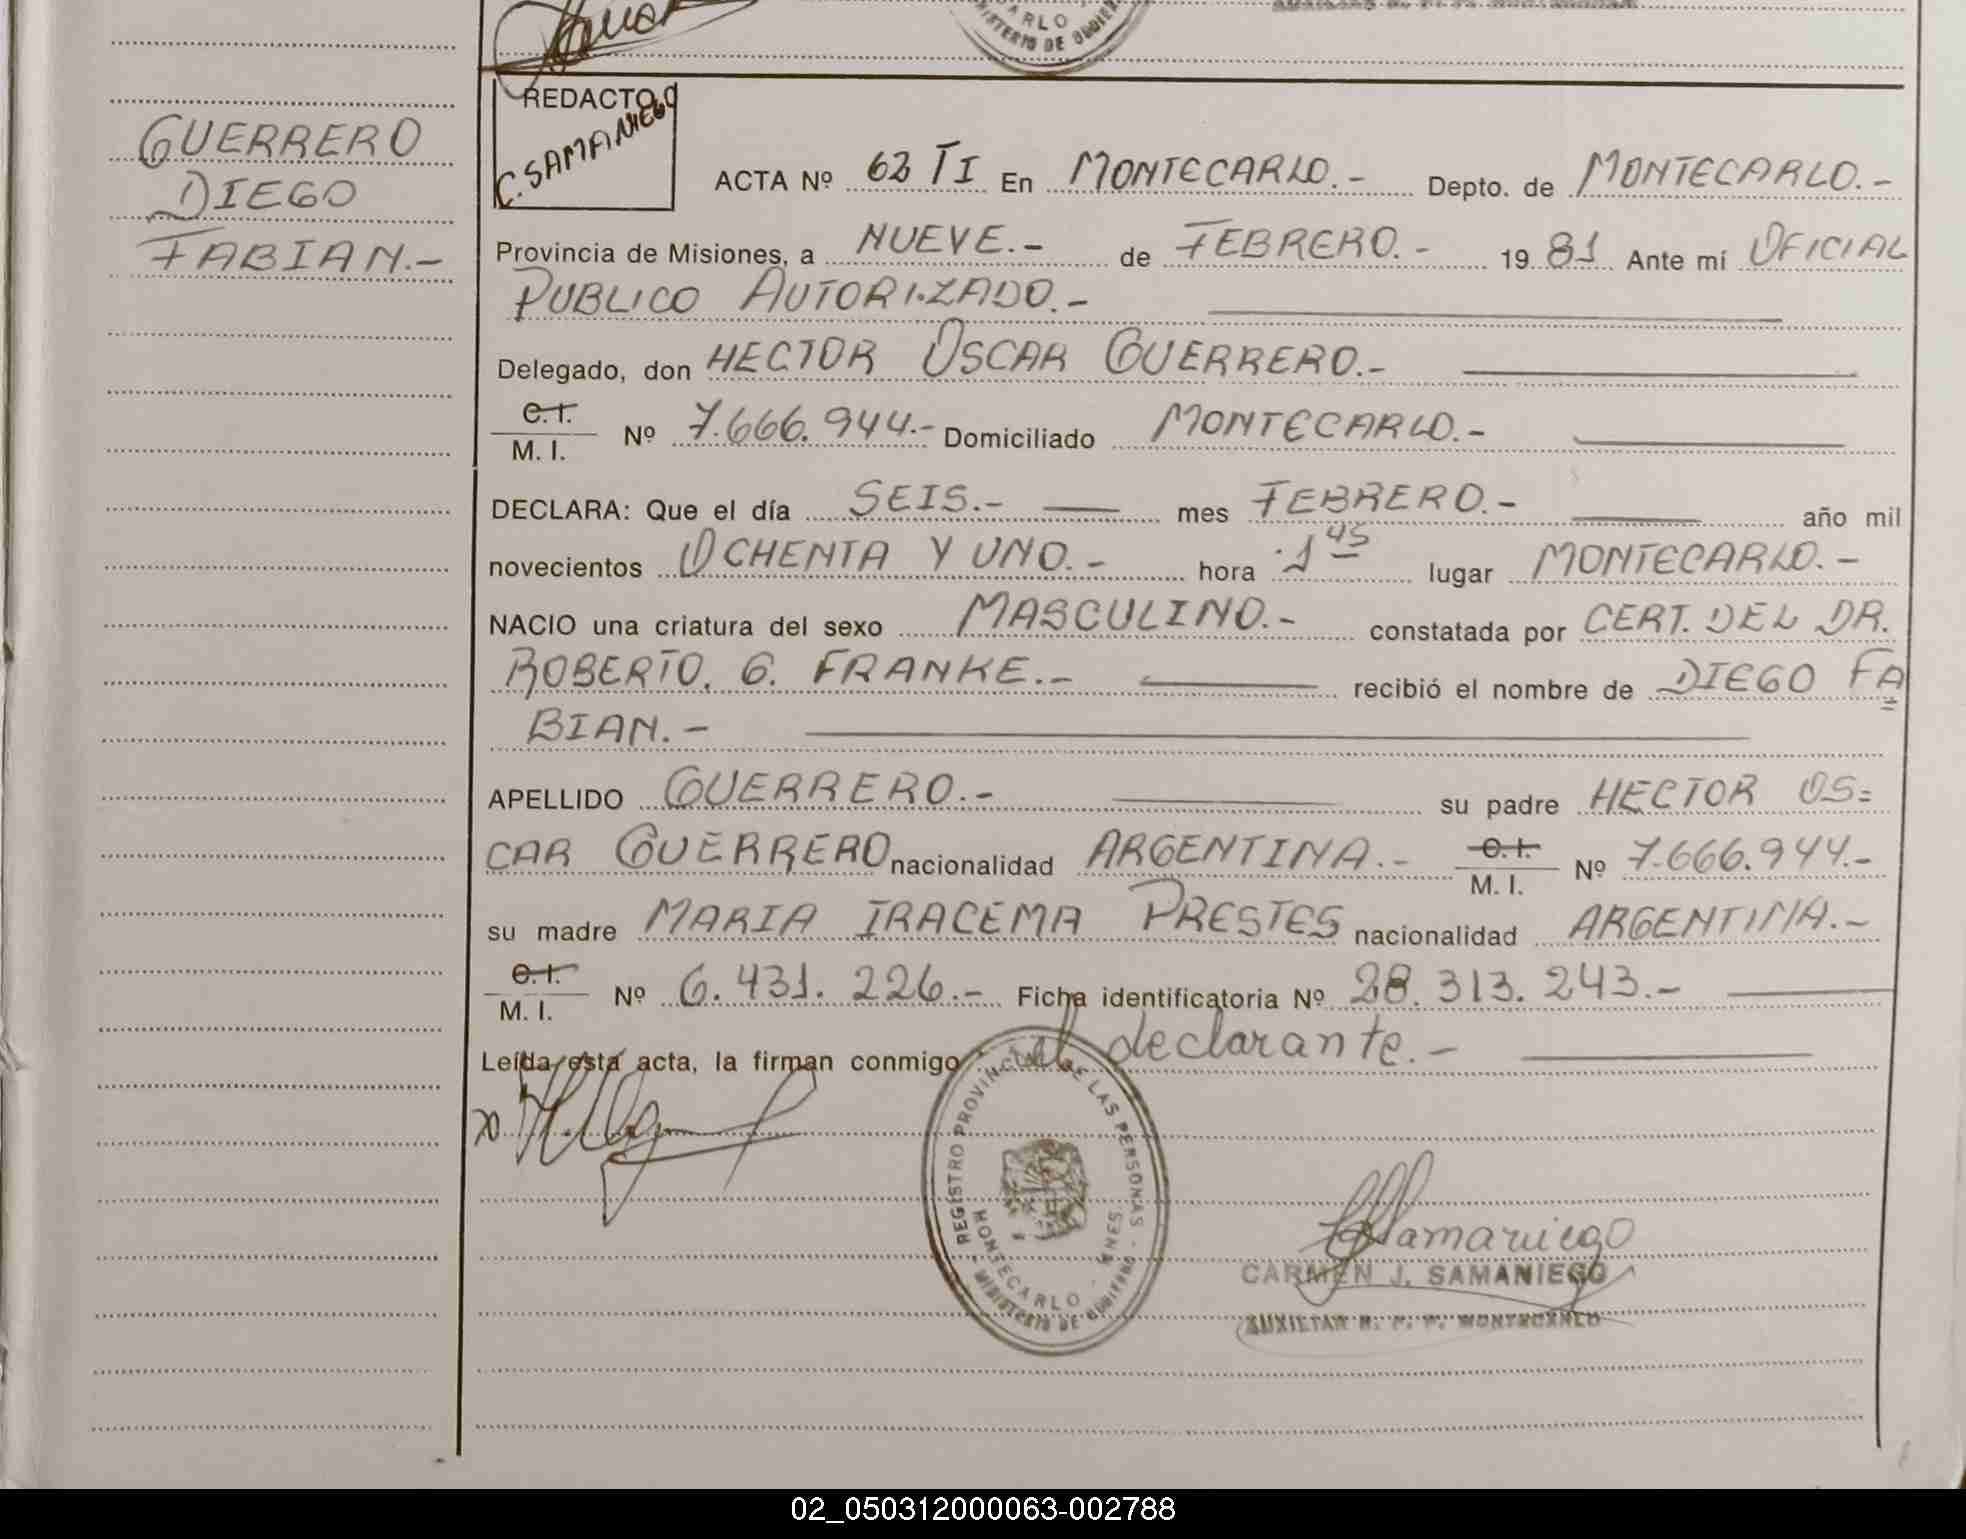 CARLO
MINISTERIO DE GOBIER
GUERRERO
DIEGO
FABIAN.-
REDACTO
C. SAMANIEGO
ACTA Nº 63 TI En MONTECARLO.- Depto. de MONTECARLO.-
Provincia de Misiones, a NUEVE.- de FEBRERO.- 1981 Ante mí OFICIAL
PUBLICO AUTORIZADO.-
Delegado, don HECTOR OSCAR GUERRERO.-
C.I. M. I. Nº 7.666.944.- Domiciliado MONTECARLO.-
DECLARA: Que el día SEIS.- mes FEBRERO.- año mil
novecientos OCHENTA Y UNO.- hora 1 45 lugar MONTECARLO.-
NACIO una criatura del sexo MASCULINO.- constatada por CERT. DEL DR.
ROBERTO. G. FRANKE.- recibió el nombre de DIEGO FA
BIAN.-
APELLIDO GUERRERO.- su padre HECTOR OS=
CAR GUERRERO nacionalidad ARGENTINA.- C.I. M. I. Nº 7.666.944.-
su madre MARIA IRACEMA PRESTES nacionalidad ARGENTINA.-
C.I. M. I. Nº 6.431.226.- Ficha identificatoria Nº 28.313.243.-
Leída esta acta, la firman conmigo el declarante.-
REGISTRO PROVINCIAL DE LAS PERSONAS - MINISTERIO DE GOBIERNO
MONTECARLO - MNES.
Samaniego
CARMEN J. SAMANIEGO
AUXILIAR R. P. P. MONTECARLO
02_050312000063-002788